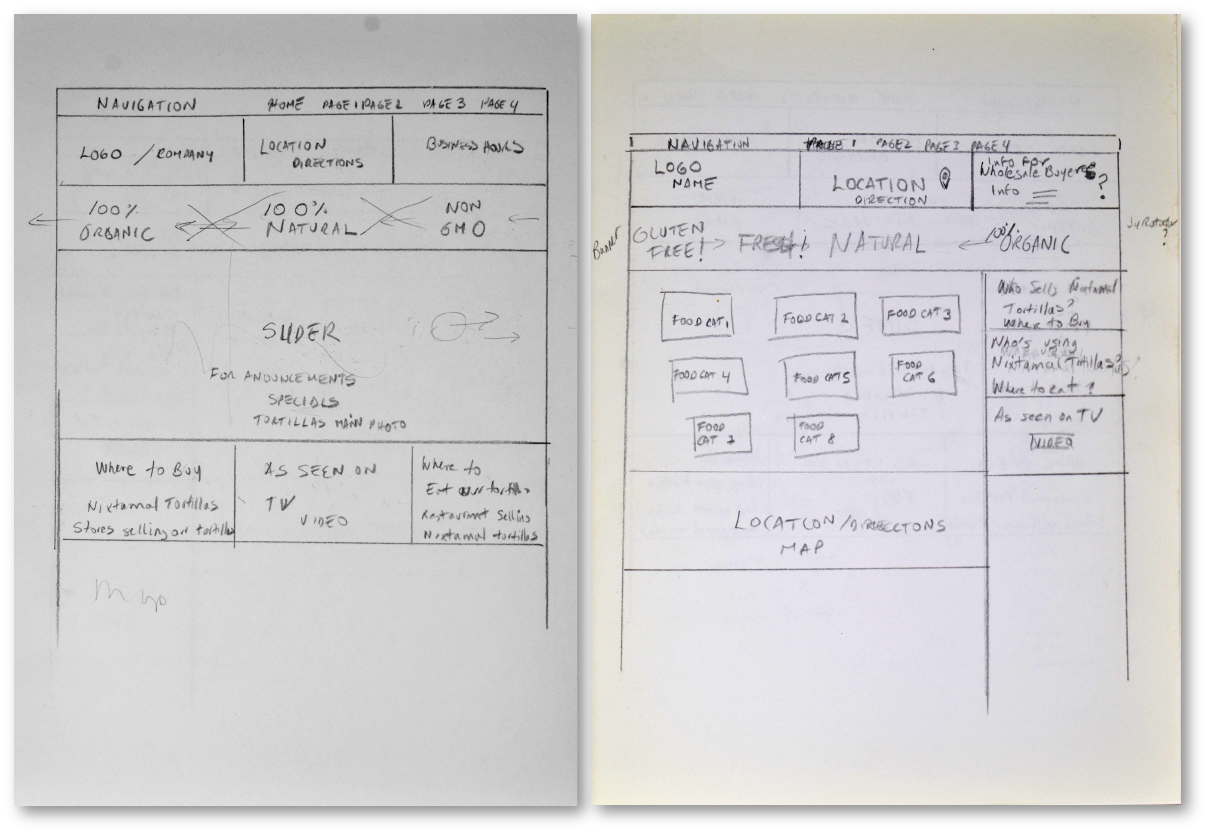 NAVIGATION HOME PAGE 1 PAGE 2 PAGE 3 PAGE 4
LOGO / COMPANY
LOCATION
DIRECTIONS
BUSINESS HOURS
100%
ORGANIC
100%
NATURAL
NON
GMO
SLIDER
FOR ANOUNCEMENTS
SPECIALS
TORTILLAS MAIN PHOTO
Where to Buy
Nixtamal Tortillas
Stores selling our tortillas
AS SEEN ON
TV
VIDEO
Where to
Eat our tortillas
Restaurant Selling
Nixtamal tortillas
NAVIGATION 1 PAGE 2 PAGE 3 PAGE 4
LOGO
NAME
LOCATION
DIRECTION
Info For
Wholesale Buyers
Info ?
Banner
GLUTEN
FREE!
FRESH!
NATURAL
100%
ORGANIC
?
FOOD CAT 1
FOOD CAT 2
FOOD CAT 3
FOOD CAT 4
FOOD CAT 5
FOOD
CAT 6
FOOD
CAT 7
FOOD
CAT 8
Who Sells Nixtamal
Tortillas?
Where to Buy
Who's using
Nixtamal Tortillas?
Where to eat?
As seen on TV
VIDEO
LOCATION/DIRECCTONS
MAP